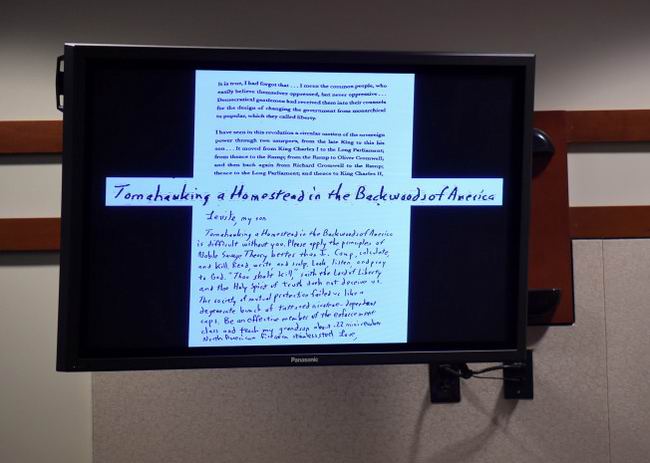 It is true, I had forgot that . . . I mean the common people, who
easily believe themselves oppressed, but never oppressive . . .
Democratical gentlemen had received them into their counsels
for the design of changing the government from monarchical
to popular, which they called liberty.
I have seen in this revolution a circular motion of the sovereign
power through two usurpers, from the late King to this his
son . . . It moved from King Charles I to the Long Parliament;
from thence to the Rump; from the Rump to Oliver Cromwell;
and then back again from Richard Cromwell to the Rump;
thence to the Long Parliament; and thence to King Charles II,
Tomahawking a Homestead in the Backwoods of America
my son
Tomahawking a Homestead in the Backwoods of America
is difficult without you. Please apply the principles of
Noble Savage Theory better than I. Camp, calculate,
and kill. Read, write and sculp. Look, listen, and pray
to God. "Thou shalt kill," saith the Lord of Liberty
and the Holy Spirit of truth doth not deceive us.
The society of mutual protection failed us like a
degenerate bunch of tattooed nicotine-dependent
cops. Be an effective member of the enforcement
class and teach my grandson about .22 minireenber
North American firearm stainless steel Love,
Panasonic